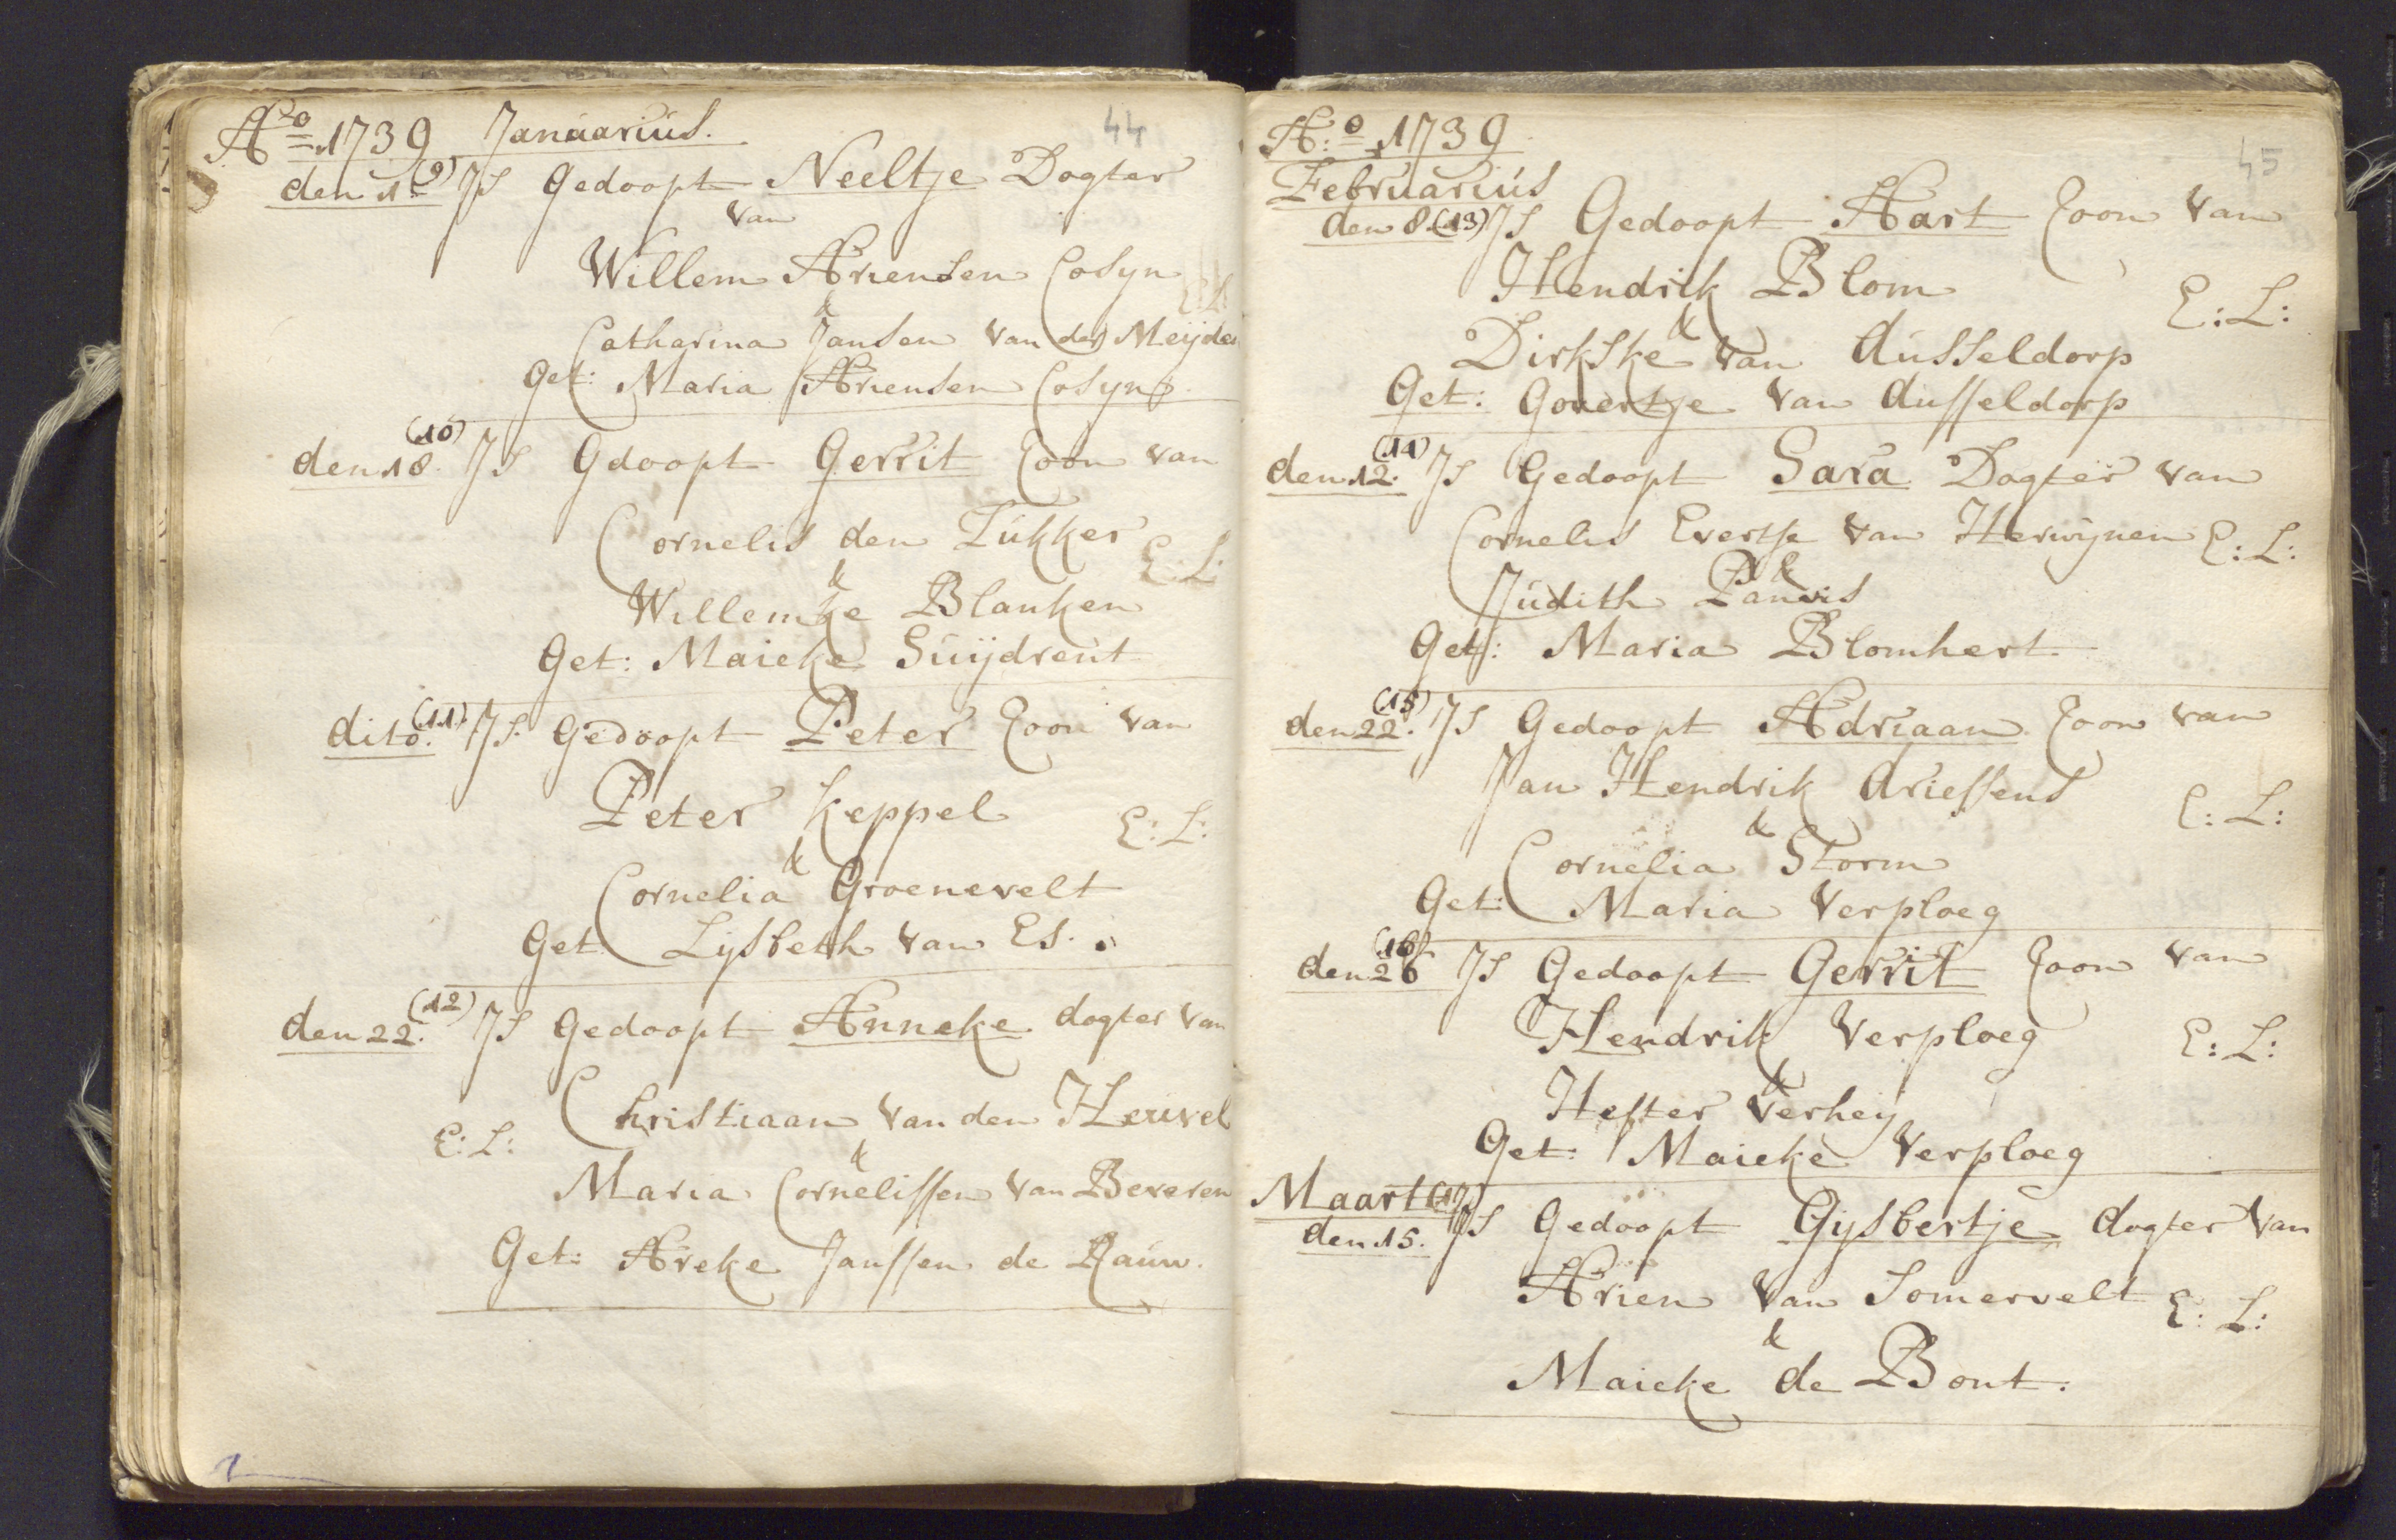 44
Ao 1739 Januarius.
den 1e (9) Js Gedoopt Neeltje Dogter
van
Willem Ariensen Cosyn
E:L:
&
Catharina Jansen van der Meijden
Get: Maria Ariensen Cosyn.
(10)
den 18. Js Gdoopt Gerrit Zoon van
Cornelis den Tukker
E:L:
&
Willemke Blanken
Get: Maieke Suijdrent
dito. (11) Js. Gedoopt Peter Zoon van
Peter Keppel
E:L:
&
Cornelia Groenevelt
Get Lijsbeth van Es.
(12)
den 22. Js Gedoopt Anneke dogter van
Christiaan van den Heuvel
E:L:
&
Maria Cornelissen van Beveren
Get: Areke Janssen de Rauw.
45
A:o 1739
Februarius
den 8. (13) Js Gedoopt Aart Zoon van
Hendrik Blom
E:L:
&
Dirkske van dusseldorp
Get: Govertje van dusseldorp
(14)
den 12. Js Gedoopt Sara Dogter van
Cornelis Evertse van Herwijnen E:L:
&
Judith Panvis
Get: Maria Blomhert
(15)
den 22. Js Gedoopt Adriaan Zoon van
Jan Hendrik driessens
E:L:
&
Cornelia Storm
Get: Maria Verploeg
(16)
den 26 Js Gedoopt Gerrit Zoon van
Hendrik Verploeg
E:L:
&
Hester Verhey
Get: Maieke Verploeg
Maart (17)
den 15. Js Gedoopt Gijsbertje dogter van
Arien van Somervelt E:L:
&
Maieke de Bont.